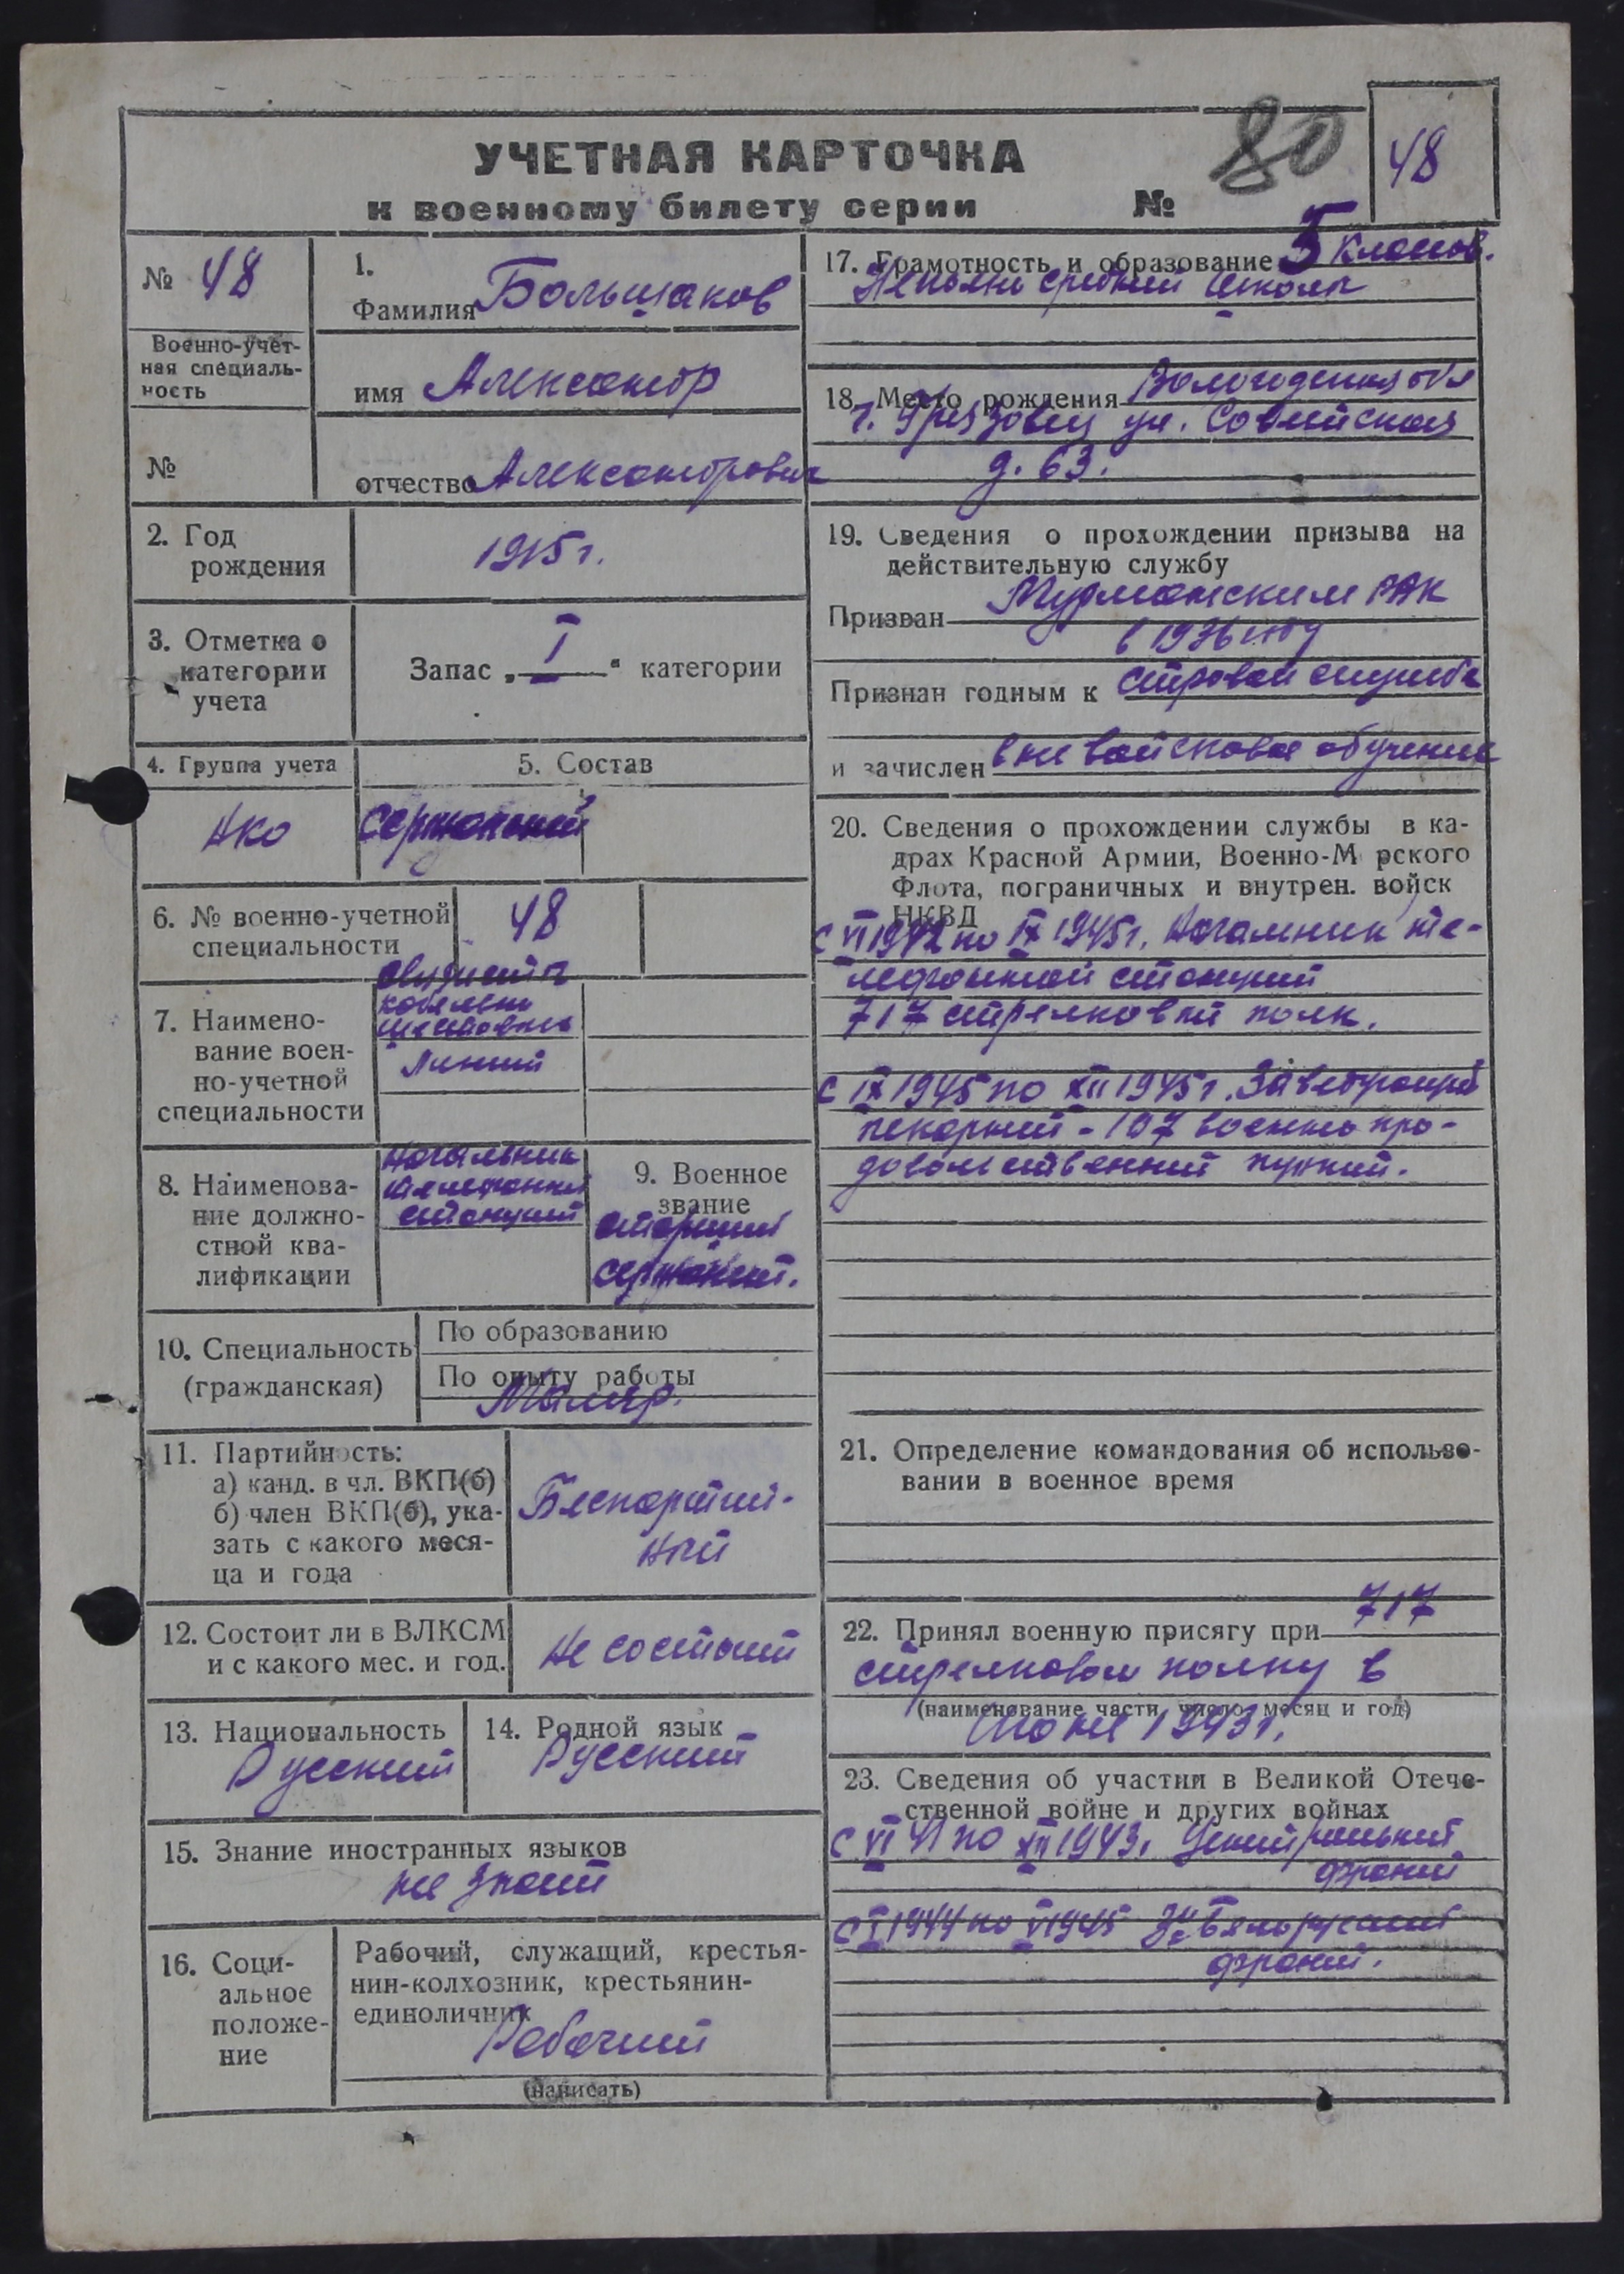 УЧЕТНАЯ КАРТОЧКА
к военному билету серии №
80
48
№ 48
Военно-учет-
ная специаль-
ность
№
1.
Фамилия Большаков
имя Александр
отчество Александрович
2. Год
рождения
1915 г.
3. Отметка о
категории
учета
Запас „ I “ категории
4. Группа учета
НКО
5. Состав
Сержантский
6. № военно-учетной
специальности
48
7. Наимено-
вание воен-
но-учетной
специальности
кабельно
шестовых
Линий
8. Наименова-
ние должно-
стной ква-
лификации
Начальник
телефонной
станций
9. Военное
звание
старший
сержант.
10. Специальность
(гражданская)
По образованию
По опыту работы
Маляр.
11. Партийность:
а) канд. в чл. ВКП(б)
б) член ВКП(б), ука-
зать с какого меся-
ца и года
Беспартий-
ный
12. Состоит ли в ВЛКСМ
и с какого мес. и год.
Не состоит
13. Национальность
Русский
14. Родной язык
Русский
15. Знание иностранных языков
не знает
16. Соци-
альное
положе-
ние
Рабочий, служащий, крестья-
нин-колхозник, крестьянин-
единоличник
Рабочий
(написать)
17. Грамотность и образование 5 классов.
Неполно средней школы
18. Место рождения Вологодская обл
г. Грязовец ул. Советская
д. 63.
19. Сведения о прохождении призыва на
действительную службу
Призван Мурманским РВК
в 1936 году
Признан годным к строевой службе
и зачислен вне войсковое обучение
20. Сведения о прохождении службы в ка-
драх Красной Армии, Военно-М рского
Флота, пограничных и внутрен. войск
НКВД
с VI 1942 по IX 1945 г. Начальник те-
лефонной станций
717 стрелковый полк.
с IX 1945 по XII 1945 г. Заведующий
пекарний - 107 военно про-
довольственный пункт.
21. Определение командования об использо-
вании в военное время
22. Принял военную присягу при 717
стрелковом полку в
(наименование части, число, месяц и год)
Июне 1943 г.
23. Сведения об участии в Великой Отече-
ственной войне и других войнах
С VI 41 по XII 1943 г. Центральный
фронт
С I 1944 по V 1945 3й Белорусский
фронт.